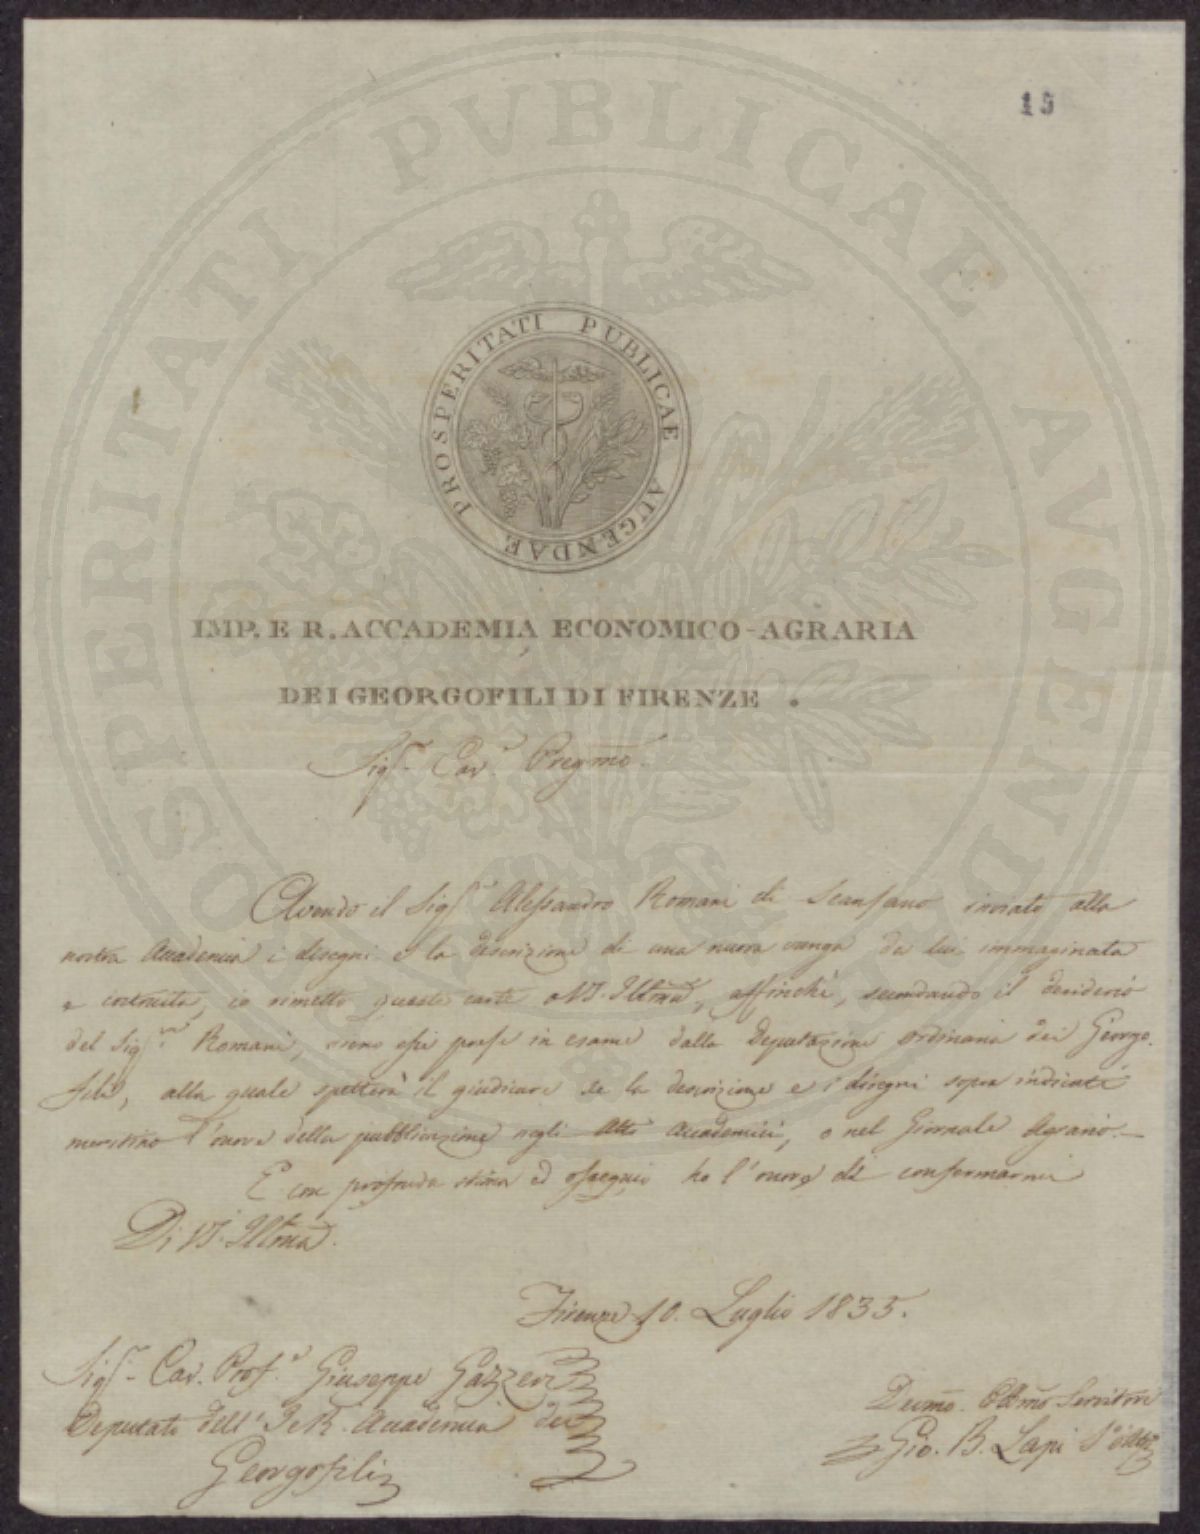 15
PROSPERITATI PUBLICAE AUGENDAE
IMP. E R. ACCADEMIA ECONOMICO-AGRARIA
DEI GEORGOFILI DI FIRENZE.
Sigr. Cav.e Pregmo.
Avendo il Sigr. Alessandro Romani di Scansano inviato alla
nostra Accademia i disegni e la descrizione di una nuova vanga da lui immaginata
e costruita, io rimetto queste carte a VS. Illma, affinchè, secondando il desiderio
del Sigr. Romani, sieno esse prese in esame dalla Deputazione ordinaria dei Georgo-
fili, alla quale spetterà il giudicare se la descrizione e i disegni sopra indicati
meritino l'onore della pubblicazione negli Atti Accademici, o nel Giornale Agrario.
E con profonda stima ed ossequio ho l'onore di confermarmi
Di VS. Illma.
Firenze 10. Luglio 1835.
Sigr. Cav. Prof.e Giuseppe Gazzeri
Deputato dell'I. e R. Accademia dei
Georgofili
Devmo. Obbmo Servitore
Gio. B. Lapi
PROSPERITATI PVBLICAE AVGENDAE